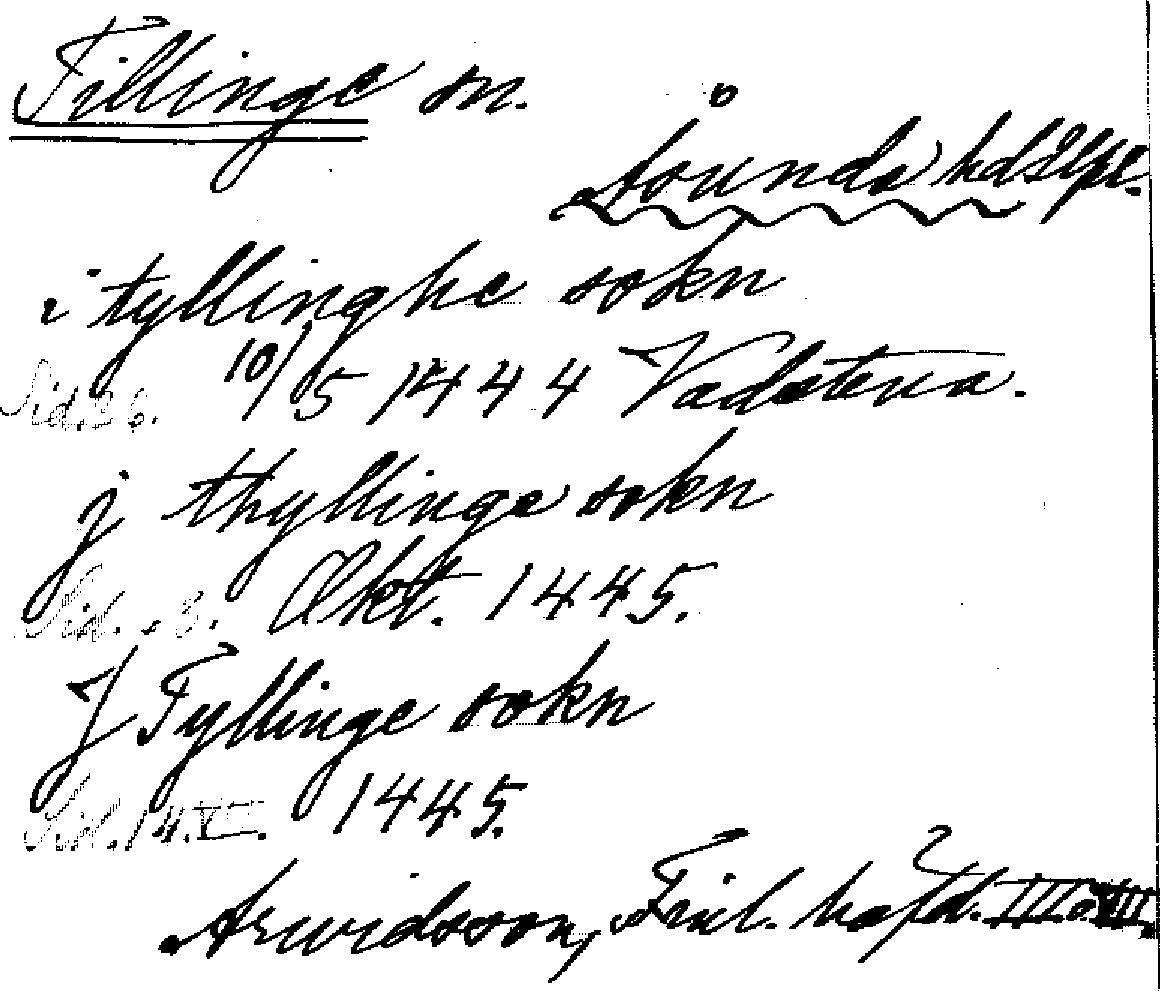 Fillinge sn.
Åkerbo hd Ögl.
i tyllinghe sokn
Sid. 26. 10/5 1444 Vadstena.
j thyllinge sokn
Sid. 3. Okt. 1445.
J Fyllinge sokn
Sid. 14. 1445.
Arwidsson, Finl. häfd.